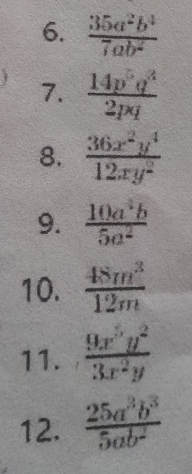 6. 35a²b⁴/7ab²
7. 14p⁵q³/2pq
8. 36x²y⁴/12xy²
9. 10a⁴b/5a²
10. 48m³/12m
11. 9x⁵y²/3x²y
12. 25a³b³/5ab²